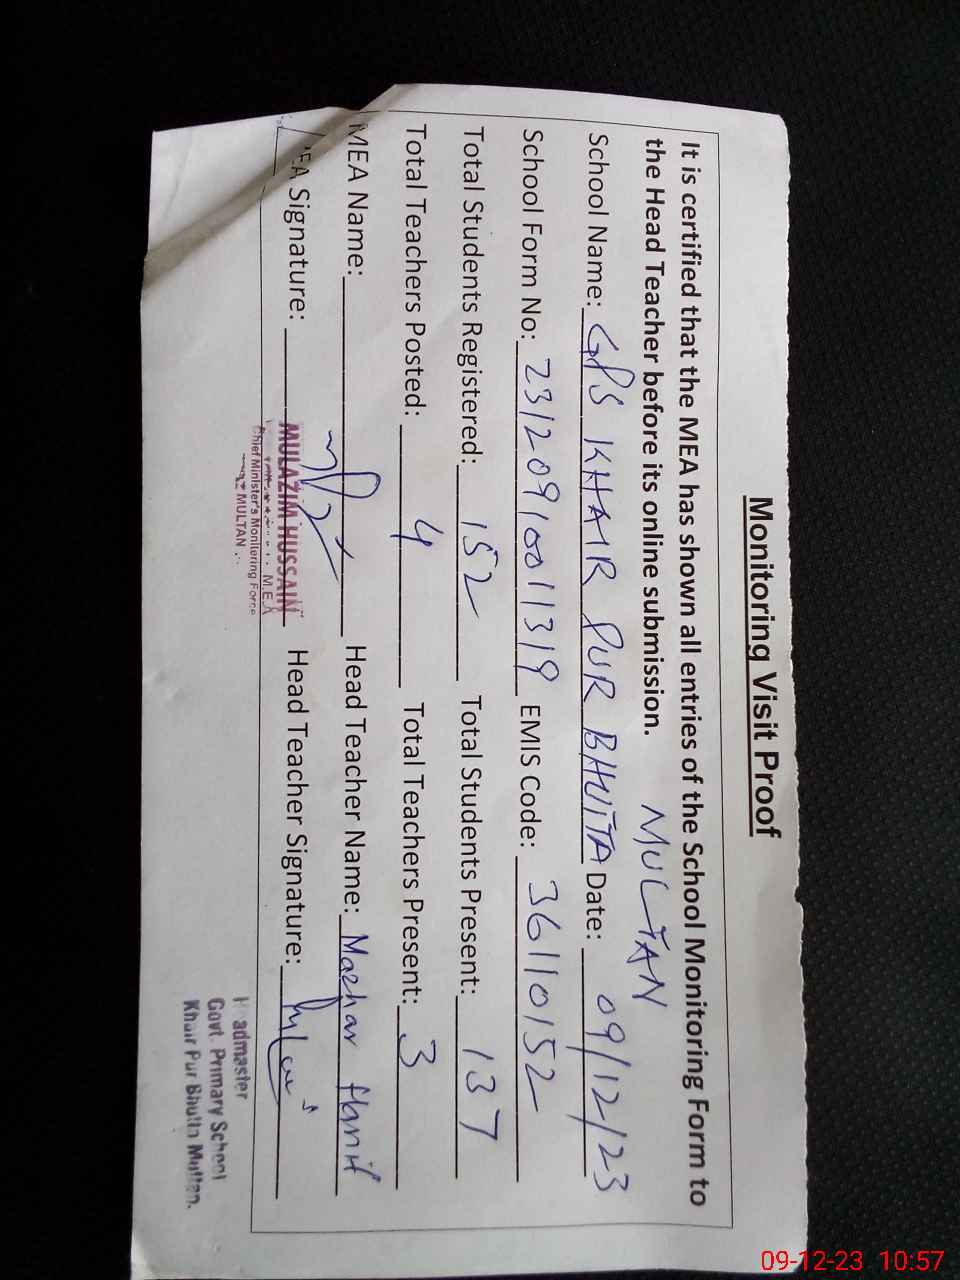 Monitoring Visit Proof
It is certified that the MEA has shown all entries of the School Monitoring Form to
the Head Teacher before its online submission. MULTAN
School Name: GPS KHAIR PUR BHUTTA Date: 09/12/23
School Form No: 2312091001319 EMIS Code: 36110152
Total Students Registered: 152 Total Students Present: 137
Total Teachers Posted: 4 Total Teachers Present: 3
MEA Name: Head Teacher Name: Mazhar Hanif
EA Signature: MULAZIM HUSSAIN Head Teacher Signature:
M.E.A
Chief Minister's Monitoring Force
MULTAN
Headmaster
Govt. Primary School
Khair Pur Bhutta Multan.
09-12-23 10:57